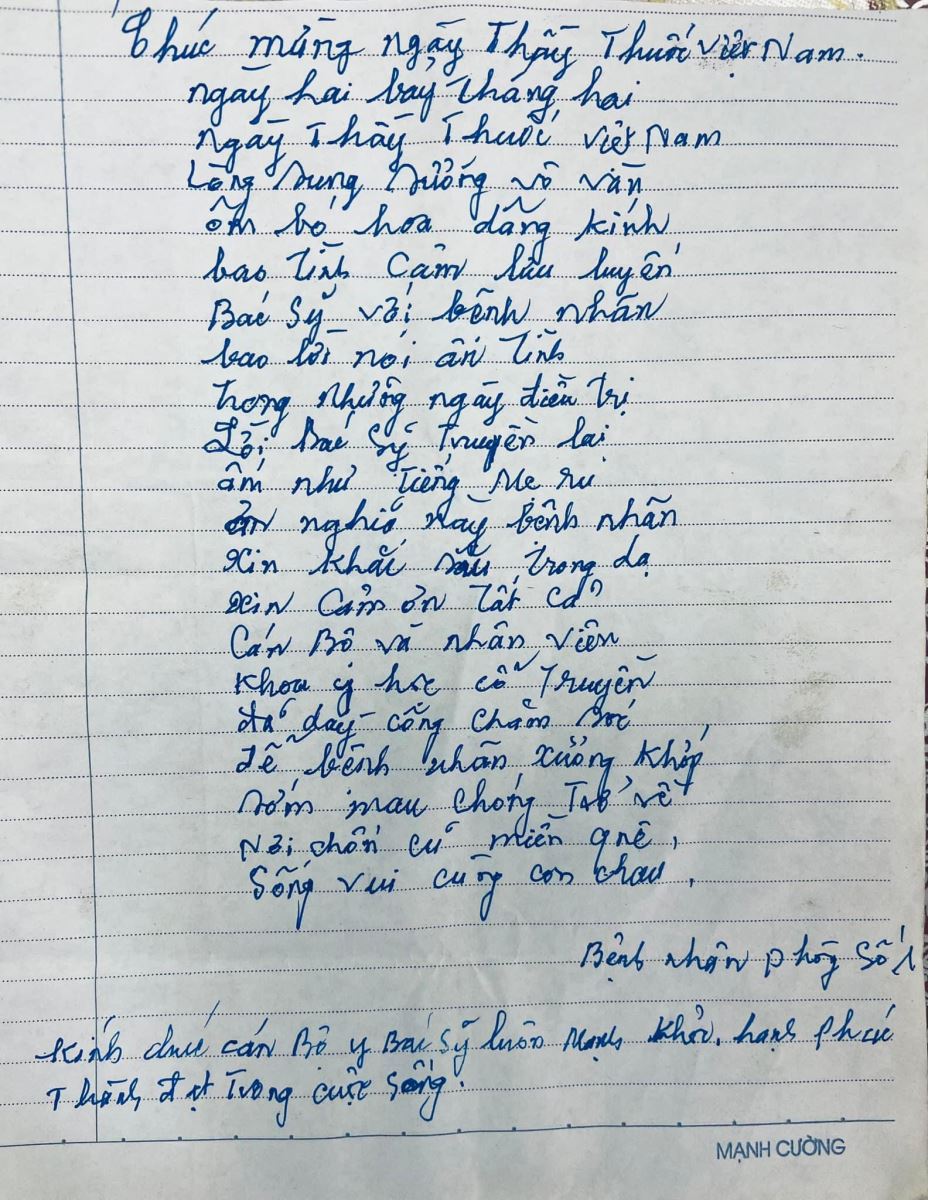 Chúc mừng ngày Thầy Thuốc Việt Nam.
ngày hai bảy tháng hai
ngày Thầy Thuốc Việt Nam
Lòng sung sướng vô vàn
ôm bó hoa dâng kính
bao tình cảm lưu luyến
Bác Sỹ với bệnh nhân
bao lời nói ân tình
trong những ngày điều trị
Lời Bác Sỹ truyền lại
ấm như tiếng Mẹ ru
ơn nghĩa này bệnh nhân
xin khắc sâu trong dạ
xin cảm ơn tất cả
Cán Bộ và nhân viên
Khoa y học cổ truyền
đã dày công chăm sóc
để bệnh nhân xương khớp
sớm mau chóng trở về
nơi chốn cũ miền quê,
Sống vui cùng con cháu,
Bệnh nhân phòng số 1
Kính chúc cán Bộ y Bác Sỹ luôn Mạnh Khỏe, hạnh phúc
Thành đạt trong cuộc sống.
MẠNH CƯỜNG